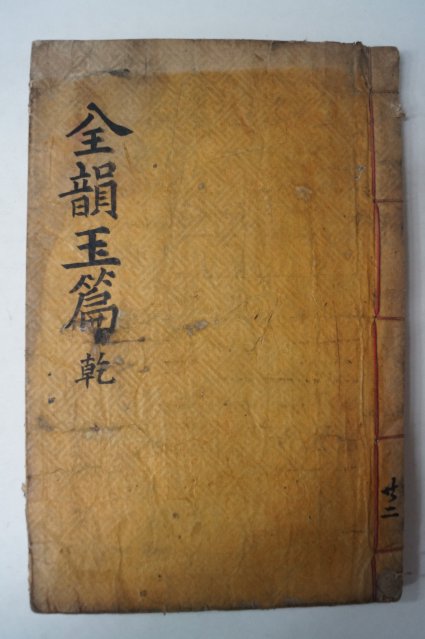 全韻玉篇 乾
共二